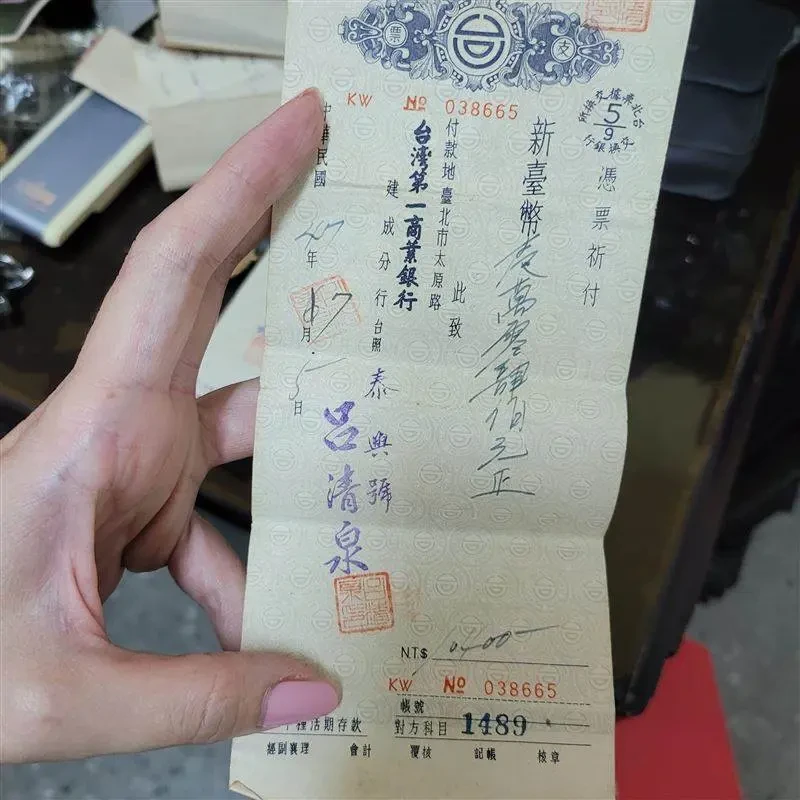 票 支
KW № 038665
憑票祈付
新臺幣壹萬零肆佰元正
此致
付款地臺北市太原路
台灣第一商業銀行
建成分行台照
泰興號
呂清泉
中華民國
47年 月5日
NT$ 10400
KW № 038665
帳號
種活期存款
對方科目 1489
經副襄理 會計 覆核 記帳 核章